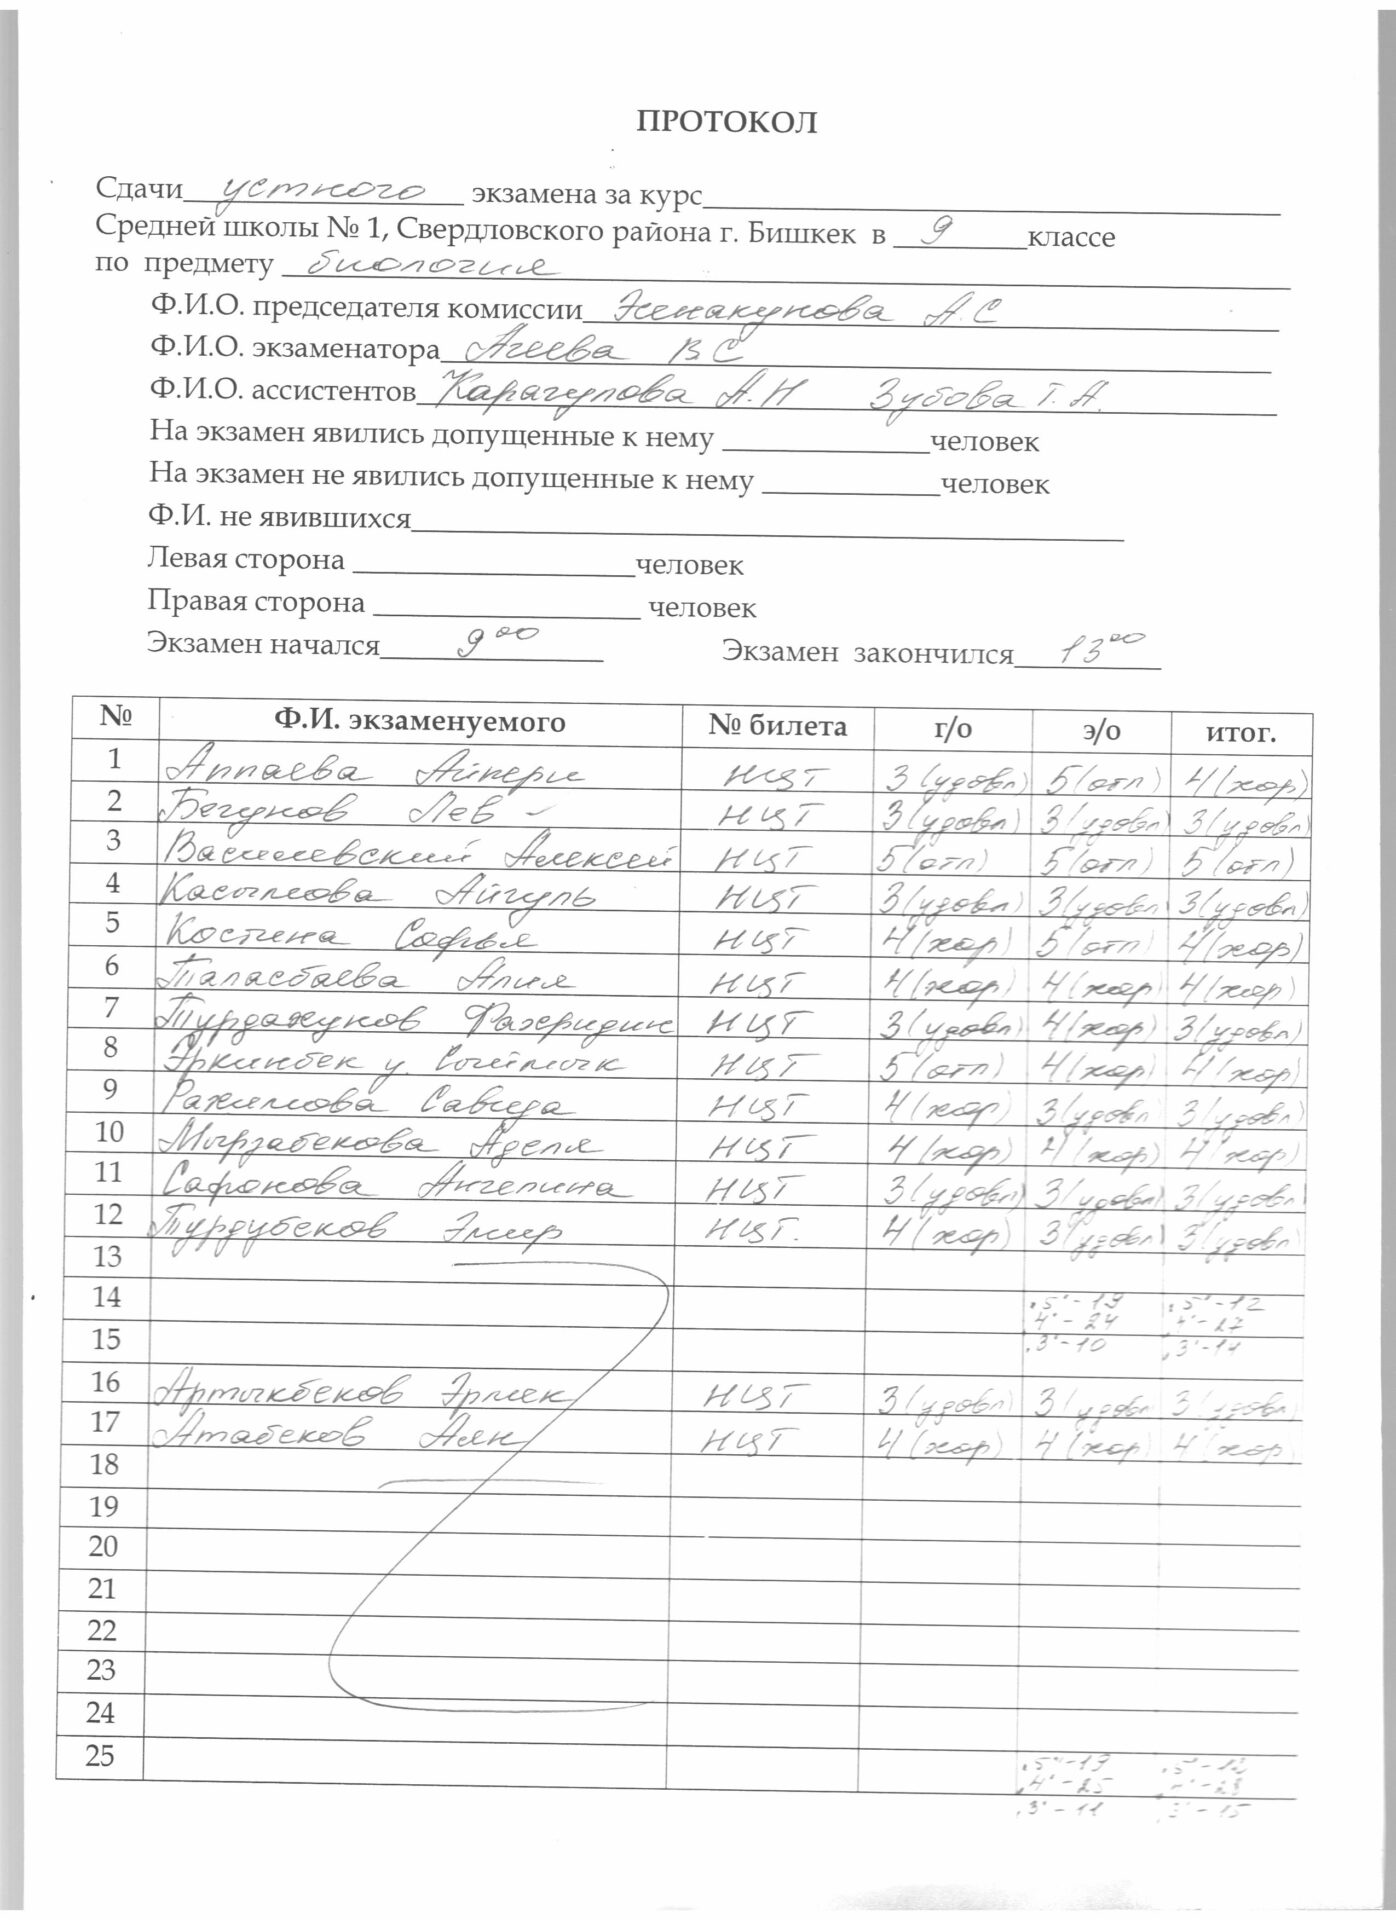 ПРОТОКОЛ
Сдачи устного экзамена за курс
Средней школы № 1, Свердловского района г. Бишкек в 9 классе
по предмету биология
Ф.И.О. председателя комиссии Эшенакунова А.С
Ф.И.О. экзаменатора Агеева В С
Ф.И.О. ассистентов Карагулова А.Н Зубова Т.А.
На экзамен явились допущенные к нему человек
На экзамен не явились допущенные к нему человек
Ф.И. не явившихся
Левая сторона человек
Правая сторона человек
Экзамен начался 9 00 Экзамен закончился 13 00
№ Ф.И. экзаменуемого № билета г/о э/о итог.
1 Аппаева Айпери НЦТ 3 (удовл) 5 (отл) 4 (хор)
2 Бегунов Лев - НЦТ 3 (удовл) 3 (удовл) 3 (удовл)
3 Василевский Алексей НЦТ 5 (отл) 5 (отл) 5 (отл)
4 Касымова Айгуль НЦТ 3 (удовл) 3 (удовл) 3 (удовл)
5 Костина Софья НЦТ 4 (хор) 5 (отл) 4 (хор)
6 Таласбаева Алия НЦТ 4 (хор) 4 (хор) 4 (хор)
7 Турдахунов Фахридин НЦТ 3 (удовл) 4 (хор) 3 (удовл)
8 Эркинбек у. Сыймык НЦТ 5 (отл) 4 (хор) 4 (хор)
9 Рахимова Савида НЦТ 4 (хор) 3 (удовл) 3 (удовл)
10 Мырзабекова Аделя НЦТ 4 (хор) 4 (хор) 4 (хор)
11 Сафонова Ангелина НЦТ 3 (удовл) 3 (удовл) 3 (удовл)
12 Турдубеков Эмир НЦТ. 4 (хор) 3 (удовл) 3 (удовл)
13
14 "5" - 19 "5" - 12
"4" - 24 "4" - 27
15 "3" - 10 "3" - 14
16 Артыкбеков Эрмек НЦТ 3 (удовл) 3 (удовл) 3 (удовл)
17 Атабеков Аян НЦТ 4 (хор) 4 (хор) 4 (хор)
18
19
20
21
22
23
24
25 "5" - 19 "5" - 12
"4" - 25 "4" - 28
"3" - 11 "3" - 15